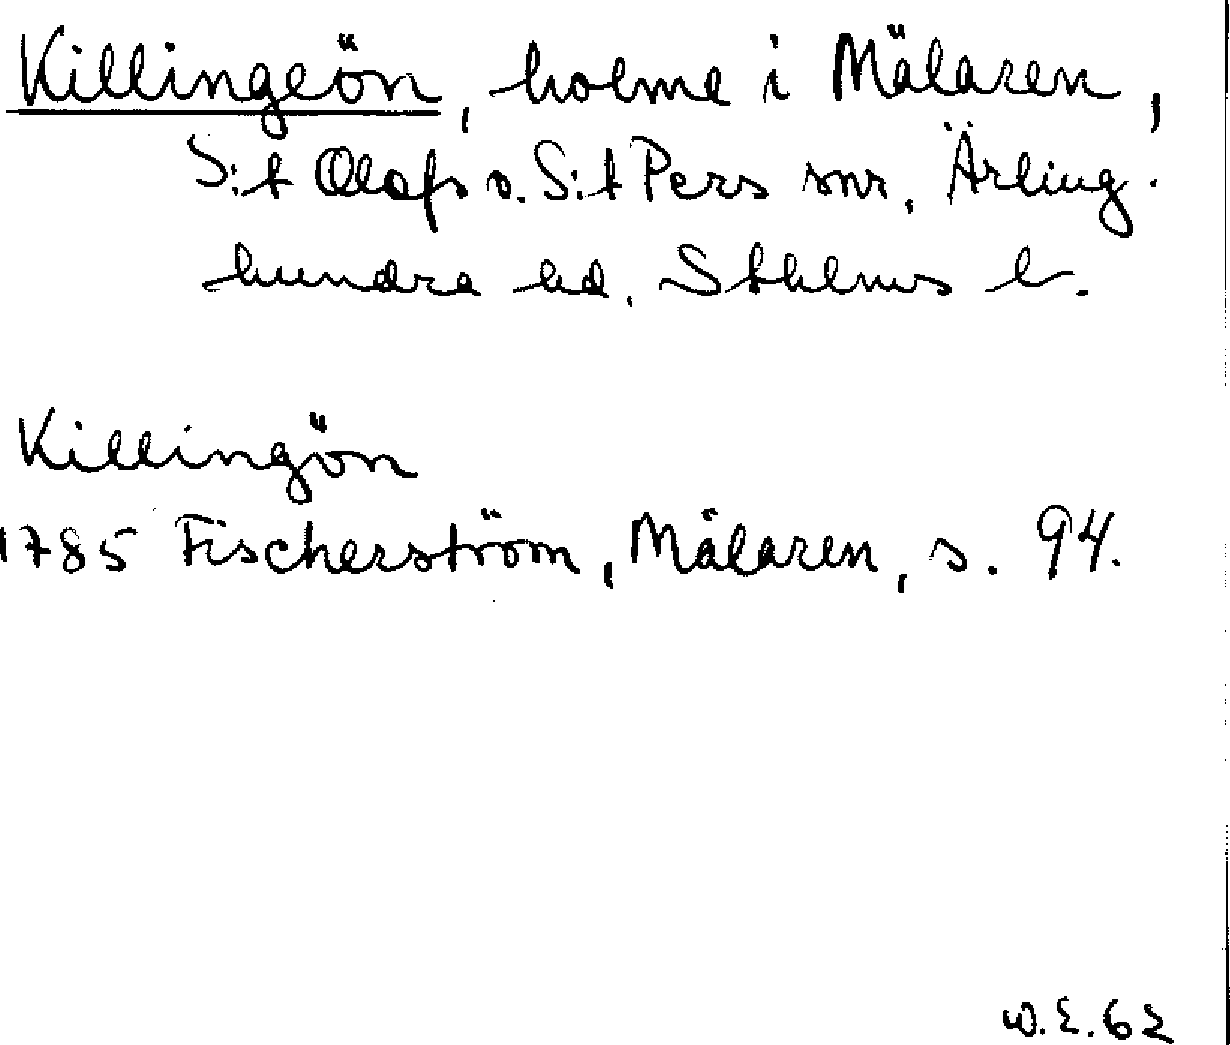 Killingeön, holme i Mälaren,
S:t Olofs o. S:t Pers snr, Ärling-
hundra hd, Sthlms l.
Killingön
1785 Fischerström, Mälaren, s. 94.
W.E.62